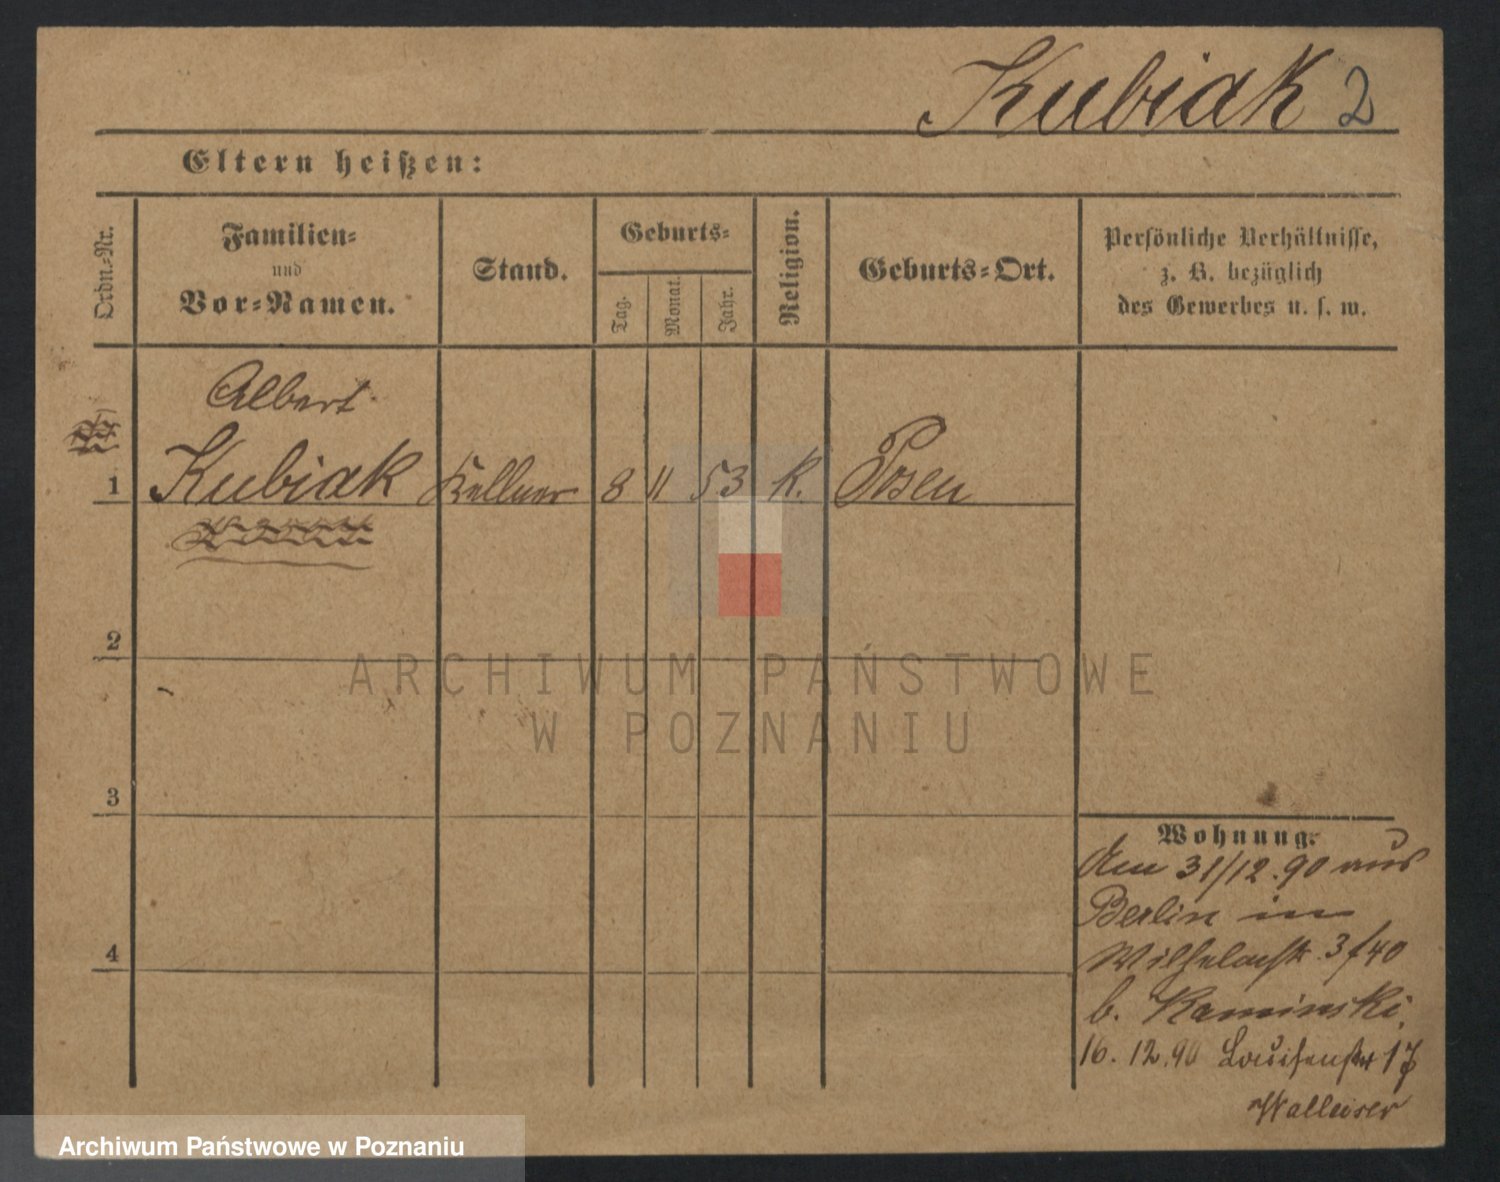 Kubiak 2
Eltern heißen:
Ordn.-Nr.
Familien-
und
Vor-Namen.
Stand.
Geburts-
Tag.
Monat.
Jahr.
Religion.
Geburts-Ort.
Persönliche Verhältnisse,
z. B. bezüglich
des Gewerbes u. s. w.
Albert
1 Kubiak Kellner 8 11 53 K. Posen
2
3
4
ARCHIWUM PAŃSTWOWE
W POZNANIU
Wohnung.
31/12.90 aus
Berlin in
Wilhelmstr. 3/40
b. Kaminski.
16.12.90 Louisenstr 17
Archiwum Państwowe w Poznaniu